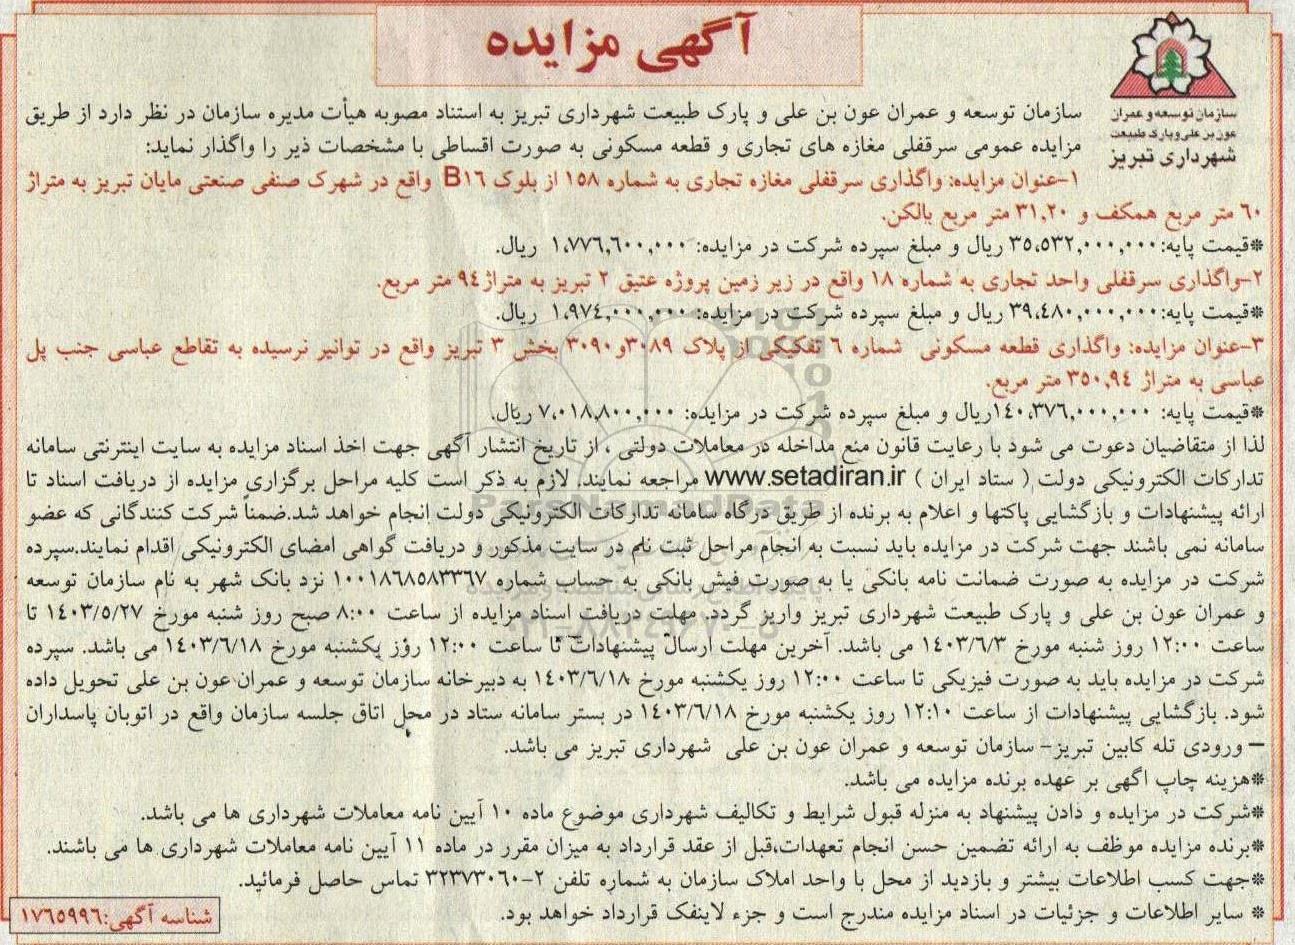 آگهی مزایده
سازمان توسعه و عمران
عون بن علی و پارک طبیعت
شهرداری تبریز
سازمان توسعه و عمران عون بن علی و پارک طبیعت شهرداری تبریز به استناد مصوبه هیأت مدیره سازمان در نظر دارد از طریق
مزایده عمومی سرقفلی مغازه های تجاری و قطعه مسکونی به صورت اقساطی با مشخصات ذیر را واگذار نماید:
۱-عنوان مزایده: واگذاری سرقفلی مغازه تجاری به شماره ۱۵۸ از بلوک B۱۶ واقع در شهرک صنفی صنعتی مایان تبریز به متراژ
۶۰ متر مربع همکف و ۳۱,۲۰ متر مربع بالکن.
*قیمت پایه: ۳۵,۵۳۲,۰۰۰,۰۰۰ ریال و مبلغ سپرده شرکت در مزایده: ۱,۷۷۶,۶۰۰,۰۰۰ ریال.
۲-واگذاری سرقفلی واحد تجاری به شماره ۱۸ واقع در زیر زمین پروژه عتیق ۲ تبریز به متراژ ۹۴ متر مربع.
*قیمت پایه: ۳۹,۴۸۰,۰۰۰,۰۰۰ ریال و مبلغ سپرده شرکت در مزایده: ۱,۹۷٤,۰۰۰,۰۰۰ ریال.
۳-عنوان مزایده: واگذاری قطعه مسکونی شماره ۶ تفکیکی از پلاک ۳۰۸۹و۳۰۹۰ بخش ۳ تبریز واقع در توانیر نرسیده به تقاطع عباسی جنب پل
عباسی به متراژ ۳۵۰,۹۴ متر مربع.
*قیمت پایه: ۱٤۰,۳۷۶,۰۰۰,۰۰۰ریال و مبلغ سپرده شرکت در مزایده: ۷,۰۱۸,۸۰۰,۰۰۰ ریال.
لذا از متقاضیان دعوت می شود با رعایت قانون منع مداخله در معاملات دولتی ، از تاریخ انتشار آگهی جهت اخذ اسناد مزایده به سایت اینترنتی سامانه
تدارکات الکترونیکی دولت ( ستاد ایران ) www.setadiran.ir مراجعه نمایند. لازم به ذکر است کلیه مراحل برگزاری مزایده از دریافت اسناد تا
ارائه پیشنهادات و بازگشایی پاکتها و اعلام به برنده از طریق درگاه سامانه تدارکات الکترونیکی دولت انجام خواهد شد.ضمناً شرکت کنندگانی که عضو
سامانه نمی باشند جهت شرکت در مزایده باید نسبت به انجام مراحل ثبت نام در سایت مذکور و دریافت گواهی امضای الکترونیکی اقدام نمایند.سپرده
شرکت در مزایده به صورت ضمانت نامه بانکی یا به صورت فیش بانکی به حساب شماره ۱۰۰۱۸۶۸۵۸۳۳۶۷ نزد بانک شهر به نام سازمان توسعه
و عمران عون بن علی و پارک طبیعت شهرداری تبریز واریز گردد. مهلت دریافت اسناد مزایده از ساعت ۸:۰۰ صبح روز شنبه مورخ ۱٤۰۳/۵/۲۷ تا
ساعت ۱۲:۰۰ روز شنبه مورخ ۱٤۰۳/۶/۳ می باشد. آخرین مهلت ارسال پیشنهادات تا ساعت ۱۲:۰۰ روز یکشنبه مورخ ۱٤۰۳/۶/۱۸ می باشد. سپرده
شرکت در مزایده باید به صورت فیزیکی تا ساعت ۱۲:۰۰ روز یکشنبه مورخ ۱٤۰۳/۶/۱۸ به دبیرخانه سازمان توسعه و عمران عون بن علی تحویل داده
شود. بازگشایی پیشنهادات از ساعت ۱۲:۱۰ روز یکشنبه مورخ ۱٤۰۳/۶/۱۸ در بستر سامانه ستاد در محل اتاق جلسه سازمان واقع در اتوبان پاسداران
– ورودی تله کابین تبریز- سازمان توسعه و عمران عون بن علی شهرداری تبریز می باشد.
*هزینه چاپ اگهی بر عهده برنده مزایده می باشد.
*شرکت در مزایده و دادن پیشنهاد به منزله قبول شرایط و تکالیف شهرداری موضوع ماده ۱۰ آیین نامه معاملات شهرداری ها می باشد.
*برنده مزایده موظف به ارائه تضمین حسن انجام تعهدات،قبل از عقد قرارداد به میزان مقرر در ماده ۱۱ آیین نامه معاملات شهرداری ها می باشند.
*جهت کسب اطلاعات بیشتر و بازدید از محل با واحد املاک سازمان به شماره تلفن ۲-۳۲۳۷۳۰۶۰ تماس حاصل فرمائید.
* سایر اطلاعات و جزئیات در اسناد مزایده مندرج است و جزء لاینفک قرارداد خواهد بود.
شناسه آگهی:۱۷۶۵۹۹۶
ParsNamadData